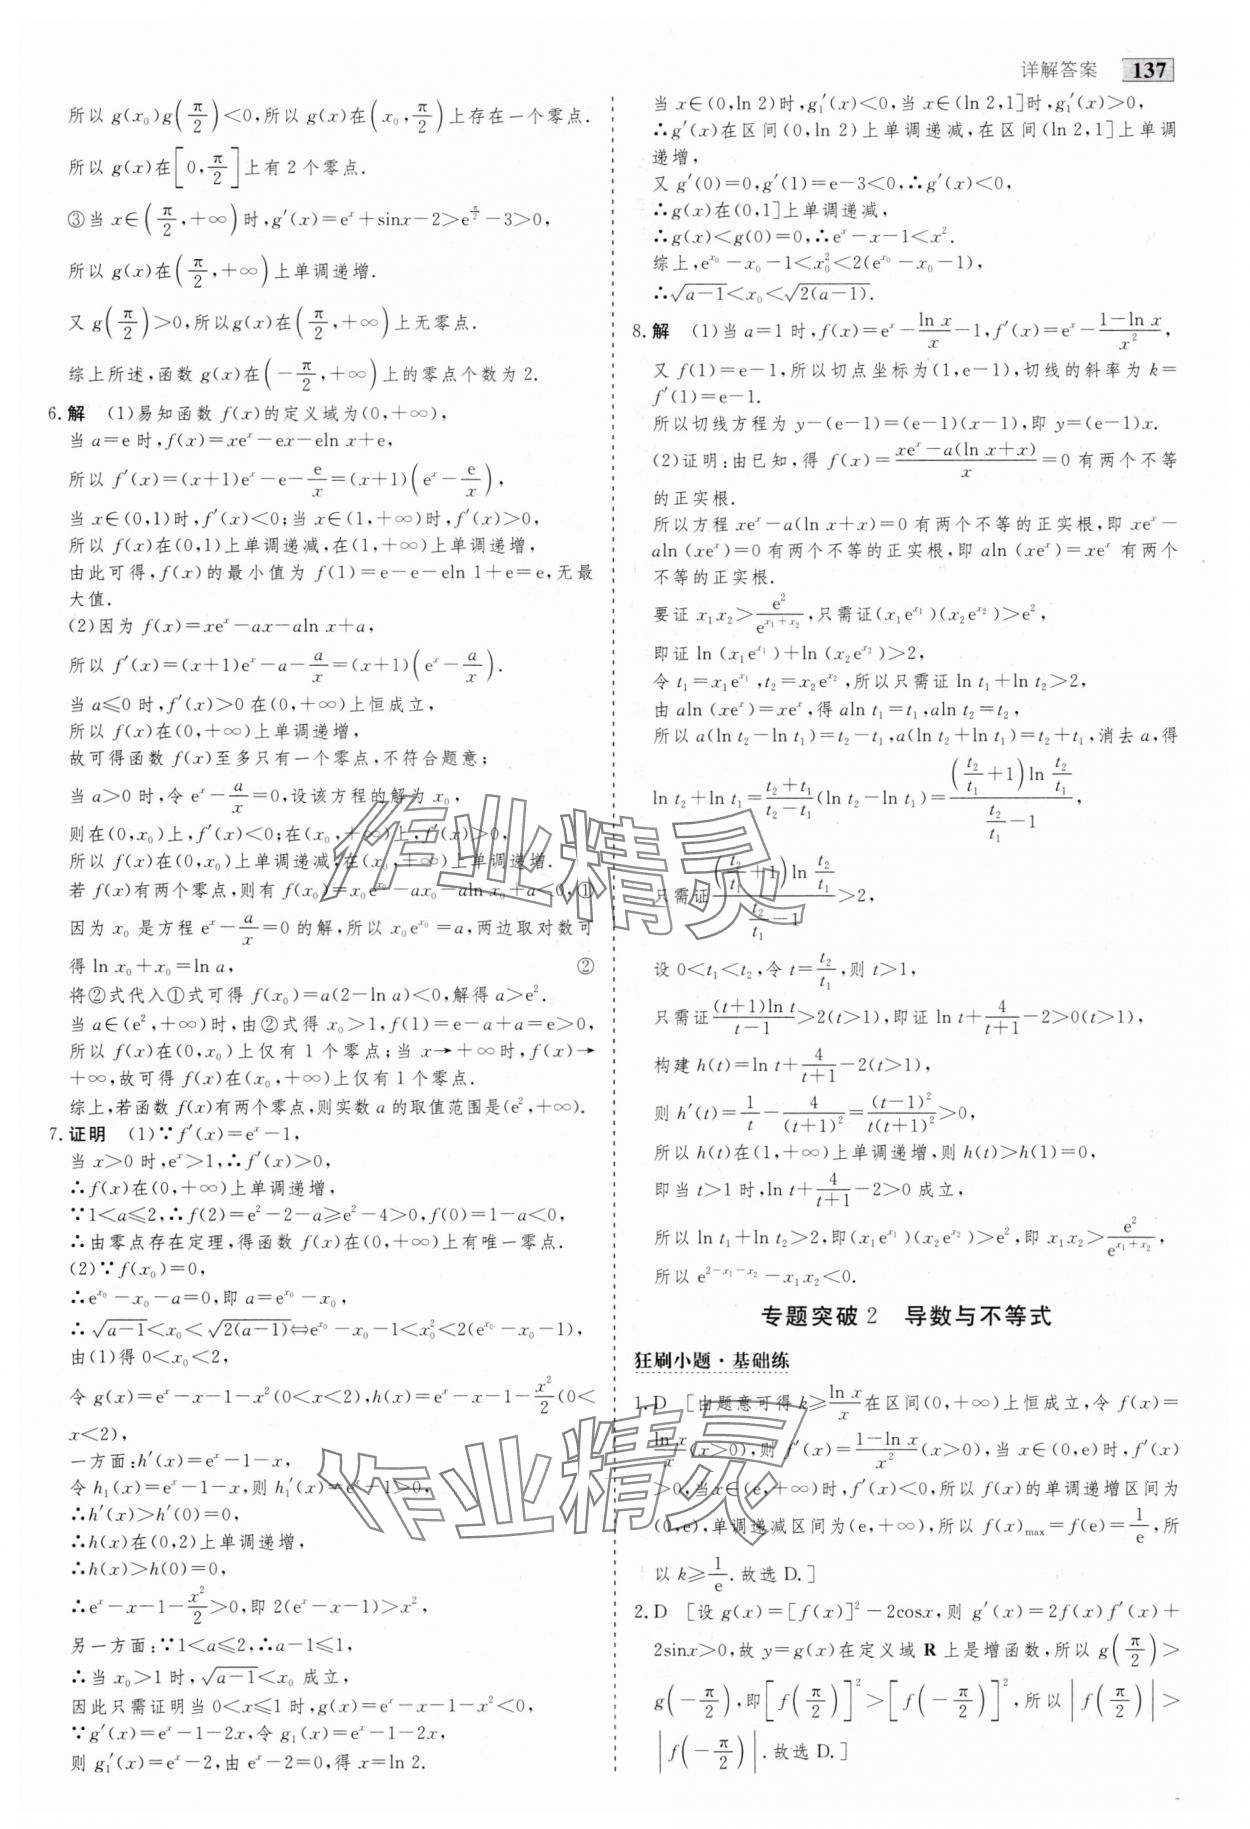 详解答案 137
所以 g(x₀)g(π/2)<0,所以 g(x)在(x₀,π/2)上存在一个零点.
所以 g(x)在[0,π/2]上有 2 个零点.
③当 x∈(π/2,+∞)时,g′(x)=eˣ+sinx-2>e^(π/2)-3>0,
所以 g(x)在(π/2,+∞)上单调递增.
又 g(π/2)>0,所以g(x)在(π/2,+∞)上无零点.
综上所述,函数 g(x)在(-π/2,+∞)上的零点个数为 2.
6.解 (1)易知函数 f(x)的定义域为(0,+∞),
当 a=e 时,f(x)=xeˣ-ex-eln x+e,
所以 f′(x)=(x+1)eˣ-e-e/x=(x+1)(eˣ-e/x),
当 x∈(0,1)时,f′(x)<0;当 x∈(1,+∞)时,f′(x)>0,
所以 f(x)在(0,1)上单调递减,在(1,+∞)上单调递增,
由此可得,f(x)的最小值为 f(1)=e-e-eln 1+e=e,无最
大值.
(2)因为 f(x)=xeˣ-ax-aln x+a,
所以 f′(x)=(x+1)eˣ-a-a/x=(x+1)(eˣ-a/x).
当 a≤0 时,f′(x)>0 在(0,+∞)上恒成立,
所以 f(x)在(0,+∞)上单调递增,
故可得函数 f(x)至多只有一个零点,不符合题意;
当 a>0 时,令 eˣ-a/x=0,设该方程的解为 x₀,
则在(0,x₀)上,f′(x)<0;在(x₀,+∞)上,f′(x)>0,
所以 f(x)在(0,x₀)上单调递减,在(x₀,+∞)上单调递增.
若 f(x)有两个零点,则有 f(x₀)=x₀e^(x₀)-ax₀-aln x₀+a<0,①
因为 x₀ 是方程 eˣ-a/x=0 的解,所以 x₀e^(x₀)=a,两边取对数可
得 ln x₀+x₀=ln a, ②
将②式代入①式可得 f(x₀)=a(2-ln a)<0,解得 a>e².
当 a∈(e²,+∞)时,由②式得 x₀>1,f(1)=e-a+a=e>0,
所以 f(x)在(0,x₀)上仅有 1 个零点;当 x→+∞时,f(x)→
+∞,故可得 f(x)在(x₀,+∞)上仅有 1 个零点.
综上,若函数 f(x)有两个零点,则实数 a 的取值范围是(e²,+∞).
7.证明 (1)∵f′(x)=eˣ-1,
当 x>0 时,eˣ>1,∴f′(x)>0,
∴f(x)在(0,+∞)上单调递增,
∵1<a≤2,∴f(2)=e²-2-a≥e²-4>0,f(0)=1-a<0,
∴由零点存在定理,得函数 f(x)在(0,+∞)上有唯一零点.
(2)∵f(x₀)=0,
∴e^(x₀)-x₀-a=0,即 a=e^(x₀)-x₀,
∴√(a-1)<x₀<√(2(a-1))⇔e^(x₀)-x₀-1<x₀²<2(e^(x₀)-x₀-1),
由(1)得 0<x₀<2,
令 g(x)=eˣ-x-1-x²(0<x<2),h(x)=eˣ-x-1-x²/2(0<
x<2),
一方面:h′(x)=eˣ-x-1,
令 h₁(x)=eˣ-1-x,则 h₁′(x)=eˣ-1>0,
∴h′(x)>h′(0)=0,
∴h(x)在(0,2)上单调递增,
∴h(x)>h(0)=0,
∴eˣ-x-1-x²/2>0,即 2(eˣ-x-1)>x²,
另一方面:∵1<a≤2,∴a-1≤1,
∴当 x₀>1 时,√(a-1)<x₀ 成立,
因此只需证明当 0<x≤1 时,g(x)=eˣ-x-1-x²<0,
∵g′(x)=eˣ-1-2x,令 g₁(x)=eˣ-1-2x,
则 g₁′(x)=eˣ-2,由 eˣ-2=0,得 x=ln 2.
当 x∈(0,ln 2)时,g₁′(x)<0,当 x∈(ln 2,1]时,g₁′(x)>0,
∴g′(x)在区间(0,ln 2)上单调递减,在区间(ln 2,1]上单调
递增,
又 g′(0)=0,g′(1)=e-3<0,∴g′(x)<0,
∴g(x)在(0,1]上单调递减,
∴g(x)<g(0)=0,∴eˣ-x-1<x².
综上,e^(x₀)-x₀-1<x₀²<2(e^(x₀)-x₀-1),
∴√(a-1)<x₀<√(2(a-1)).
8.解 (1)当 a=1 时,f(x)=eˣ-ln x/x-1,f′(x)=eˣ-(1-ln x)/x²,
又 f(1)=e-1,所以切点坐标为(1,e-1),切线的斜率为 k=
f′(1)=e-1.
所以切线方程为 y-(e-1)=(e-1)(x-1),即 y=(e-1)x.
(2)证明:由已知,得 f(x)=(xeˣ-a(ln x+x))/x=0 有两个不等
的正实根.
所以方程 xeˣ-a(ln x+x)=0 有两个不等的正实根,即 xeˣ-
aln (xeˣ)=0 有两个不等的正实根,即 aln (xeˣ)=xeˣ 有两个
不等的正实根.
要证 x₁x₂>e²/e^(x₁+x₂),只需证(x₁e^(x₁))(x₂e^(x₂))>e²,
即证 ln (x₁e^(x₁))+ln (x₂e^(x₂))>2,
令 t₁=x₁e^(x₁),t₂=x₂e^(x₂),所以只需证 ln t₁+ln t₂>2,
由 aln (xeˣ)=xeˣ,得 aln t₁=t₁,aln t₂=t₂,
所以 a(ln t₂-ln t₁)=t₂-t₁,a(ln t₂+ln t₁)=t₂+t₁,消去 a,得
ln t₂+ln t₁=(t₂+t₁)/(t₂-t₁)(ln t₂-ln t₁)=((t₂/t₁+1)ln t₂/t₁)/(t₂/t₁-1),
只需证((t₂/t₁+1)ln t₂/t₁)/(t₂/t₁-1)>2,
设 0<t₁<t₂,令 t=t₂/t₁,则 t>1,
只需证((t+1)ln t)/(t-1)>2(t>1),即证 ln t+4/(t+1)-2>0(t>1),
构建 h(t)=ln t+4/(t+1)-2(t>1),
则 h′(t)=1/t-4/(t+1)²=(t-1)²/(t(t+1)²)>0,
所以 h(t)在(1,+∞)上单调递增,则 h(t)>h(1)=0,
即当 t>1 时,ln t+4/(t+1)-2>0 成立,
所以 ln t₁+ln t₂>2,即(x₁e^(x₁))(x₂e^(x₂))>e²,即 x₁x₂>e²/e^(x₁+x₂),
所以 e^(2-x₁-x₂)-x₁x₂<0.
专题突破 2 导数与不等式
狂刷小题·基础练
1.D [由题意可得 k≥ln x/x在区间(0,+∞)上恒成立,令 f(x)=
ln x/x(x>0),则 f′(x)=(1-ln x)/x²(x>0),当 x∈(0,e)时,f′(x)
>0,当x∈(e,+∞)时,f′(x)<0,所以 f(x)的单调递增区间为
(0,e),单调递减区间为(e,+∞),所以 f(x)max=f(e)=1/e,所
以 k≥1/e.故选 D.]
2.D [设 g(x)=[f(x)]²-2cosx,则 g′(x)=2f(x)f′(x)+
2sinx>0,故 y=g(x)在定义域 R 上是增函数,所以 g(π/2)>
g(-π/2),即[f(π/2)]²>[f(-π/2)]²,所以|f(π/2)|>
|f(-π/2)|.故选 D.]
作业精灵
作业精灵